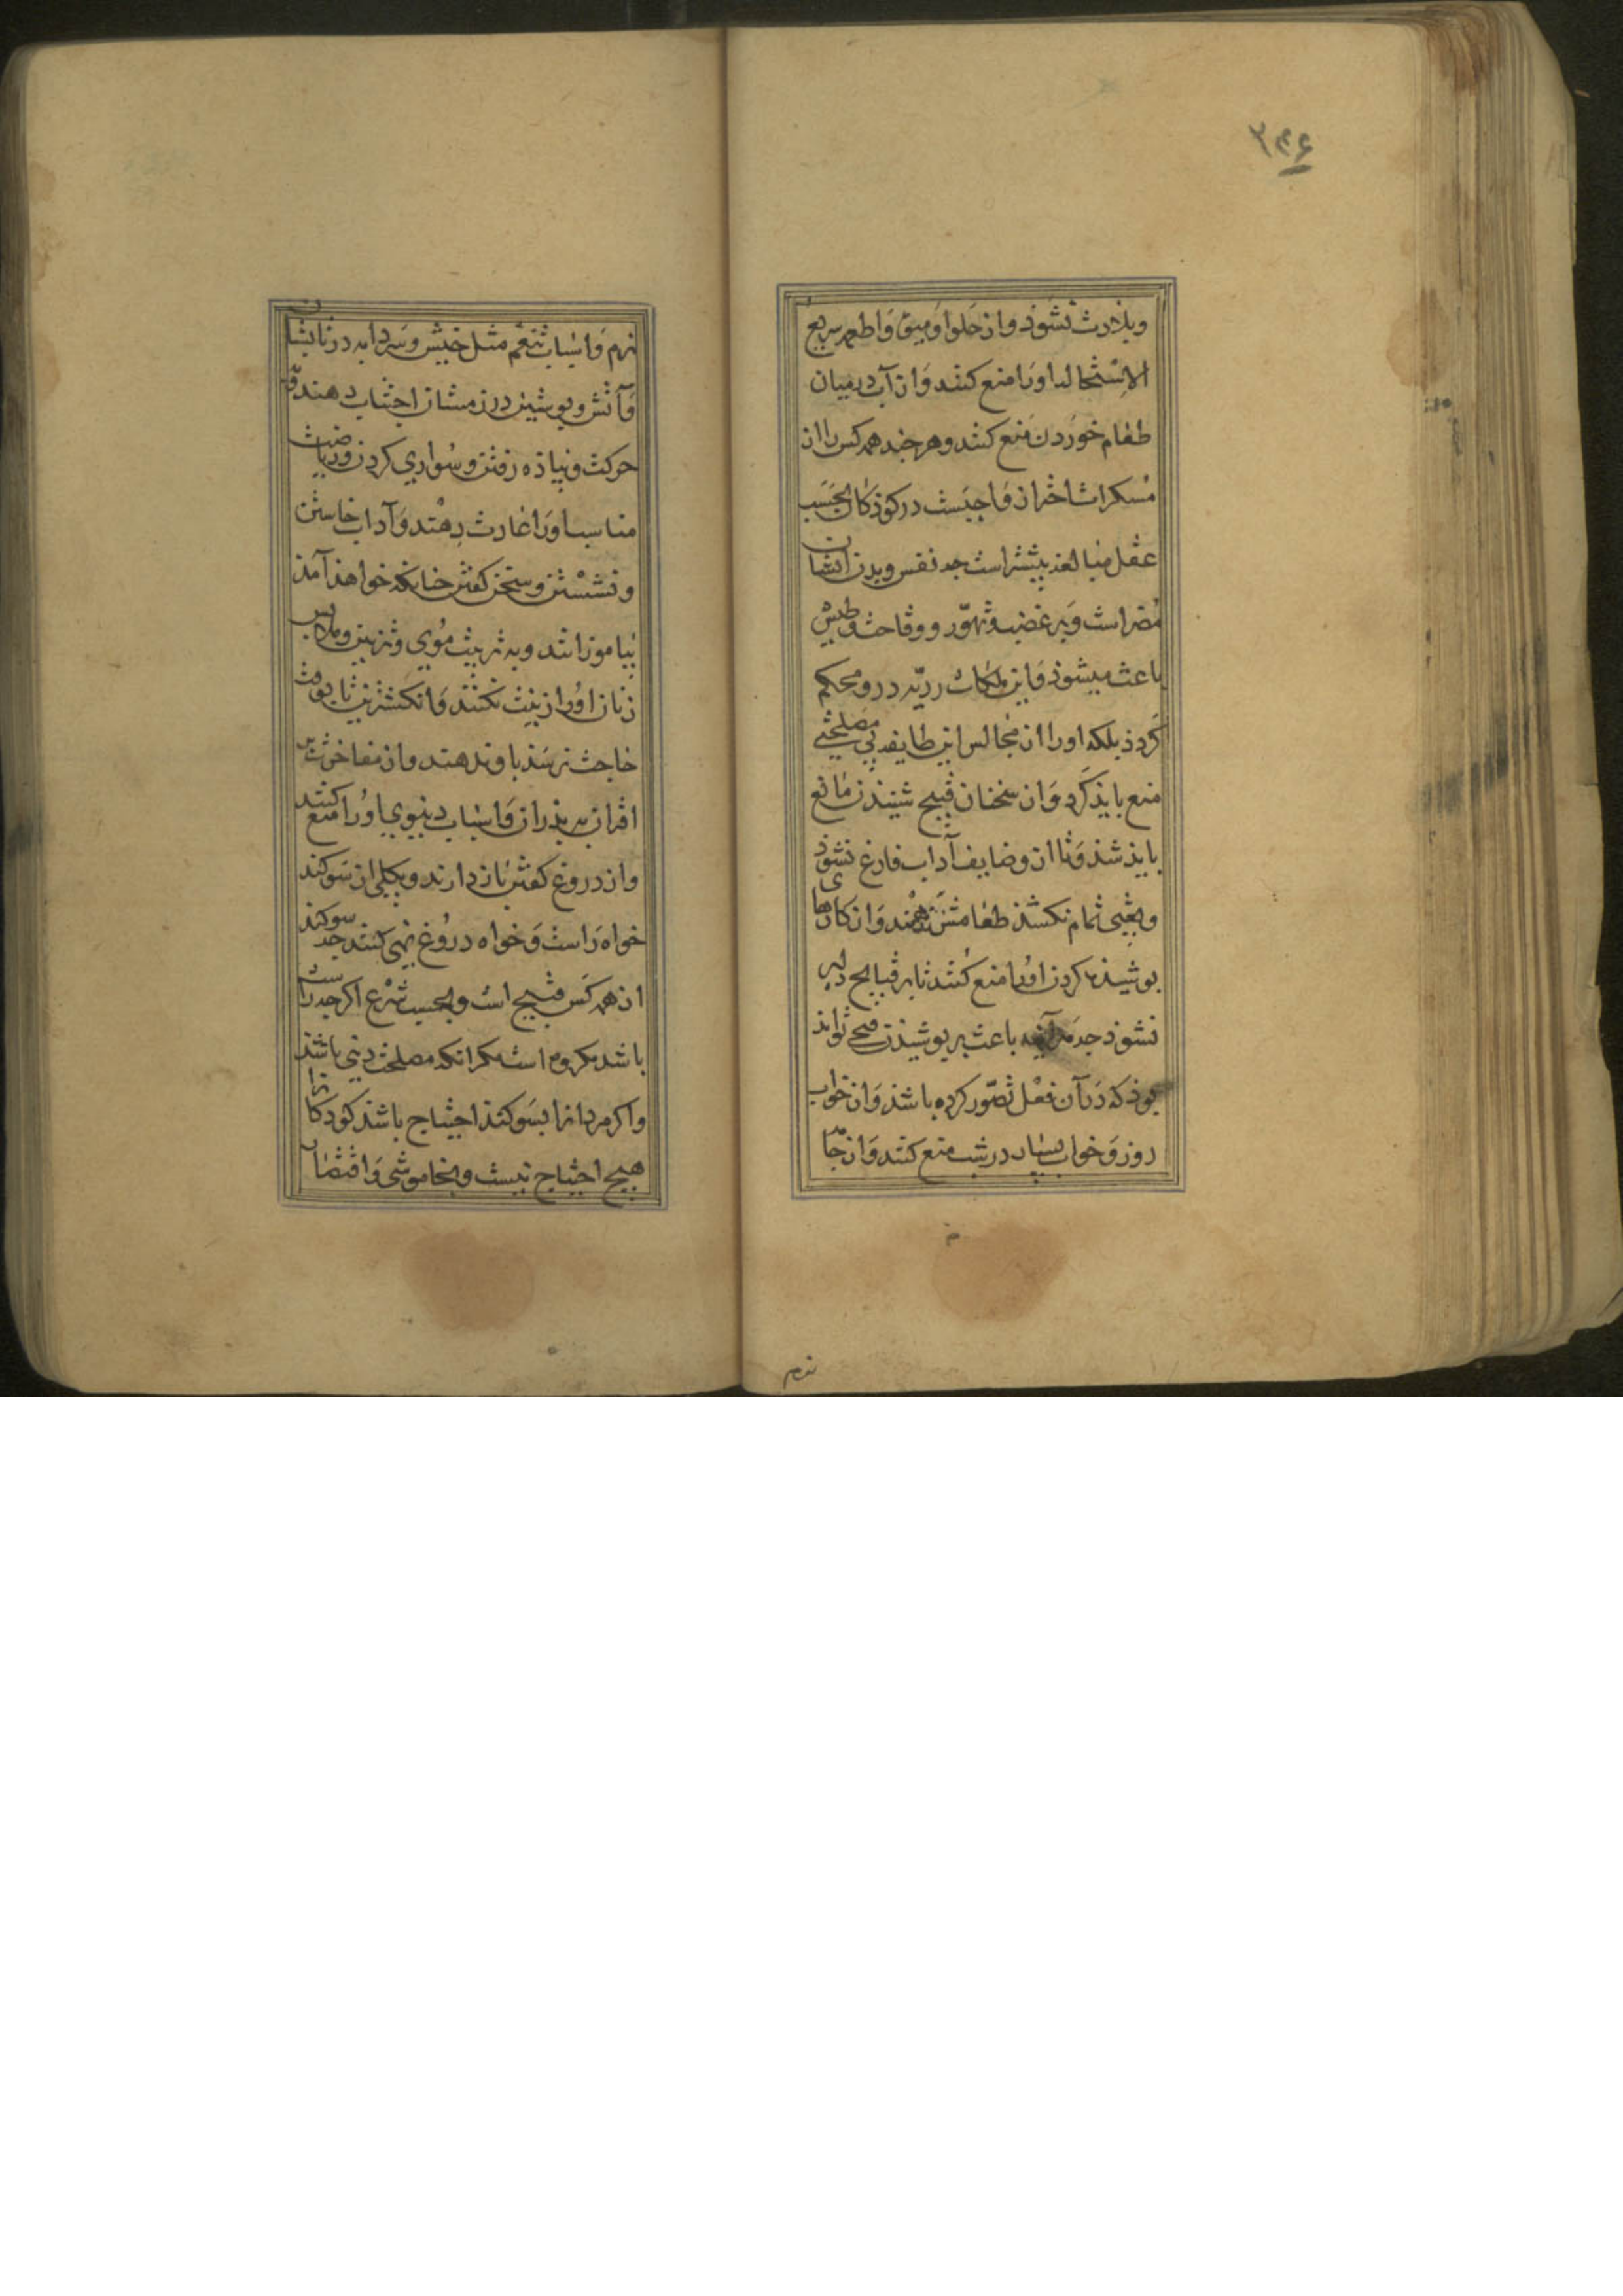 ۳۴۶
وبلادت نشوذ واز حلوا و میوه و اطعمه سریع
الاستحاله اورا منع کنند و از آب درمیان
طعام خوردن منع کنند و هرچند همه کس را از
مسکرات احتراز واجبست در کوذکان بحسب
عقل مبالغه بیشتر است چه نفس و بدن ایشان
مضر است و بر غضب و تهوّر و وقاحت و طیش
باعث میشوذ و این ملکات ردیّه در و محکم
گردذ بلکه اورا از مجالس این طایفه بی مصلحتی
منع بایذ کرد و از سخنان قبیح شنیذن مانع
بایذ شذ و تا از وضایف آداب فارغ نشوذ
و تعبی تمام نکشذ طعامش ندهند و از کارهای
پوشیذه کردن اورا منع کنند تا بر قبایح دلیر
نشوذ چه باعث بر پوشیذن قبحی تواند
بوذ که در آن فعل تصوّر کرده باشذ و از خواب
روز و خواب بسیار در شب منع کنند و از جامه
نرم
نرم و اسباب تنعّم مثل خیش و سردابه در تابستان
و آتش و پوستین در زمستان اجتناب دهند و به
حرکت و پیاذه رفتن و سواری کردن و ریاضت
مناسب اورا عادت دهند و آداب خاستن
و نشستن و سخن گفتن چنانکه خواهذ آمذ
بیاموزانند و به تربیت موی و تزیین و ملابس
زنان اورا زینت نکنند و انگشترین تا بوقت
حاجت نرسذ باو ندهند و از مفاخرت بر
اقران به پذران و اسباب دنیوی اورا منع کنند
و از دروغ گفتن باز دارند و بکلی از سوگند
خواه راست و خواه دروغ نهی کنند چه سوگند
از همه کس قبیح است و بحسب شرع اگرچه راست
باشد مکروه است مگر آنکه مصلحت دینی باشذ
و اگر مردانرا بسوگند احتیاج باشذ کوذکانرا
هیچ احتیاج نیست و بخاموشی و اقتصار